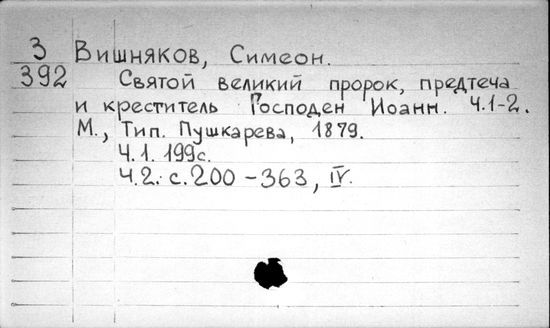 3 Вишняков, Симеон.
392 Святой великий пророк, предтеча
и креститель Господен Иоанн. Ч.1-2.
М., Тип. Пушкарева, 1879.
Ч.1. 199с.
Ч.2. с.200-363, IV.